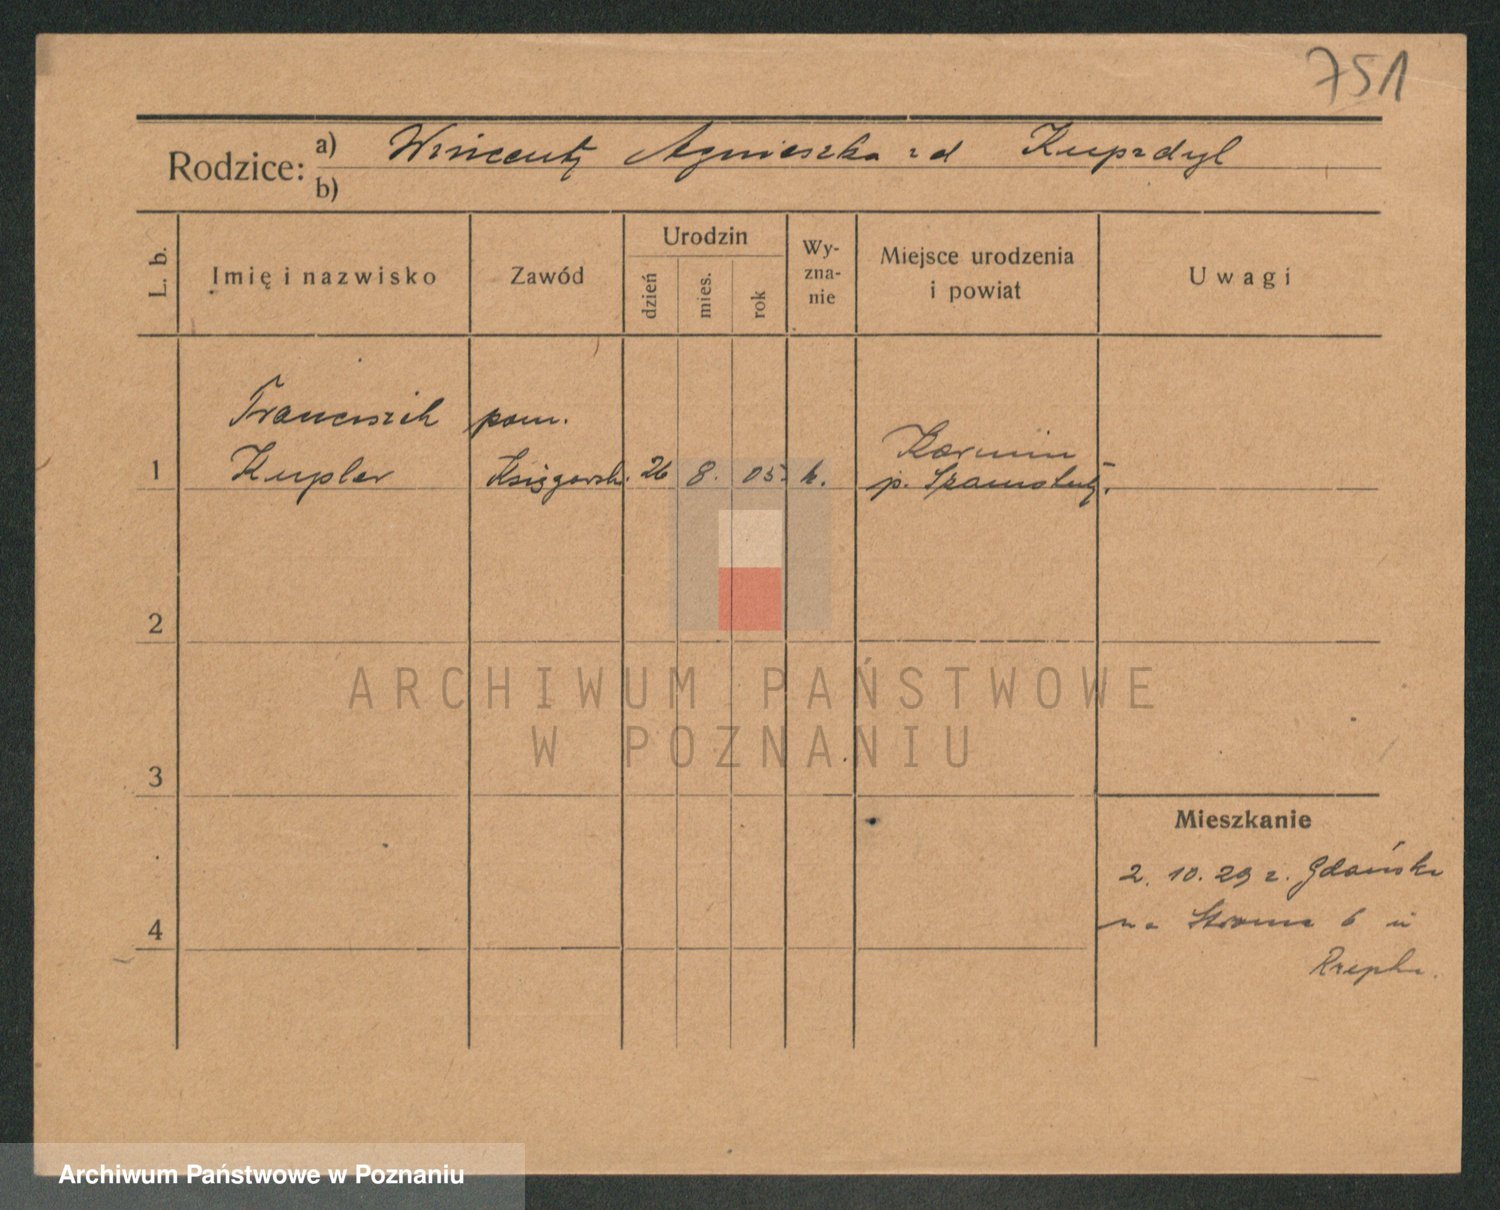 751
Rodzice: a) Wincenty Agnieszka zd Kupzdyl
b)
L. b.
Imię i nazwisko
Zawód
Urodzin
dzień
mies.
rok
Wy-
zna-
nie
Miejsce urodzenia
i powiat
Uwagi
Franciszek pom.
1 Kupler Księgarsk. 26 8. 05. k. Karmin
p. Szamotuły.
2
3
4
ARCHIWUM PAŃSTWOWE
W POZNANIU
Mieszkanie
2. 10. 29 z Gdańska
na Stroma 6 u
Archiwum Państwowe w Poznaniu